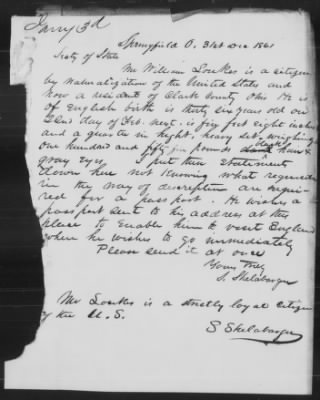 Jany 3d
Springfield O. 31st Dec 1861
Secty of State
Mr William Lookes is a citizen
by naturalization of the United States and
now a resident of Clark County Ohio He is
of English birth is thirty six years old on
22nd day of Feb. next. is five feet eight inches
and a quarter in hight, heavy set, weighing
one hundred and fifty six pounds black hair &
gray Eyes I put this statement
down here not knowing what requisites
in the way of description are requi-
red for a passport. He wishes a
passport sent to his address at this
place to enable him to visit England
where he wishes to go immediately
Please send it at once
Yours Truly
S. Shelabarger
Mr Lookes is a strictly loyal citizen
of the U. S.
S Shelabarger